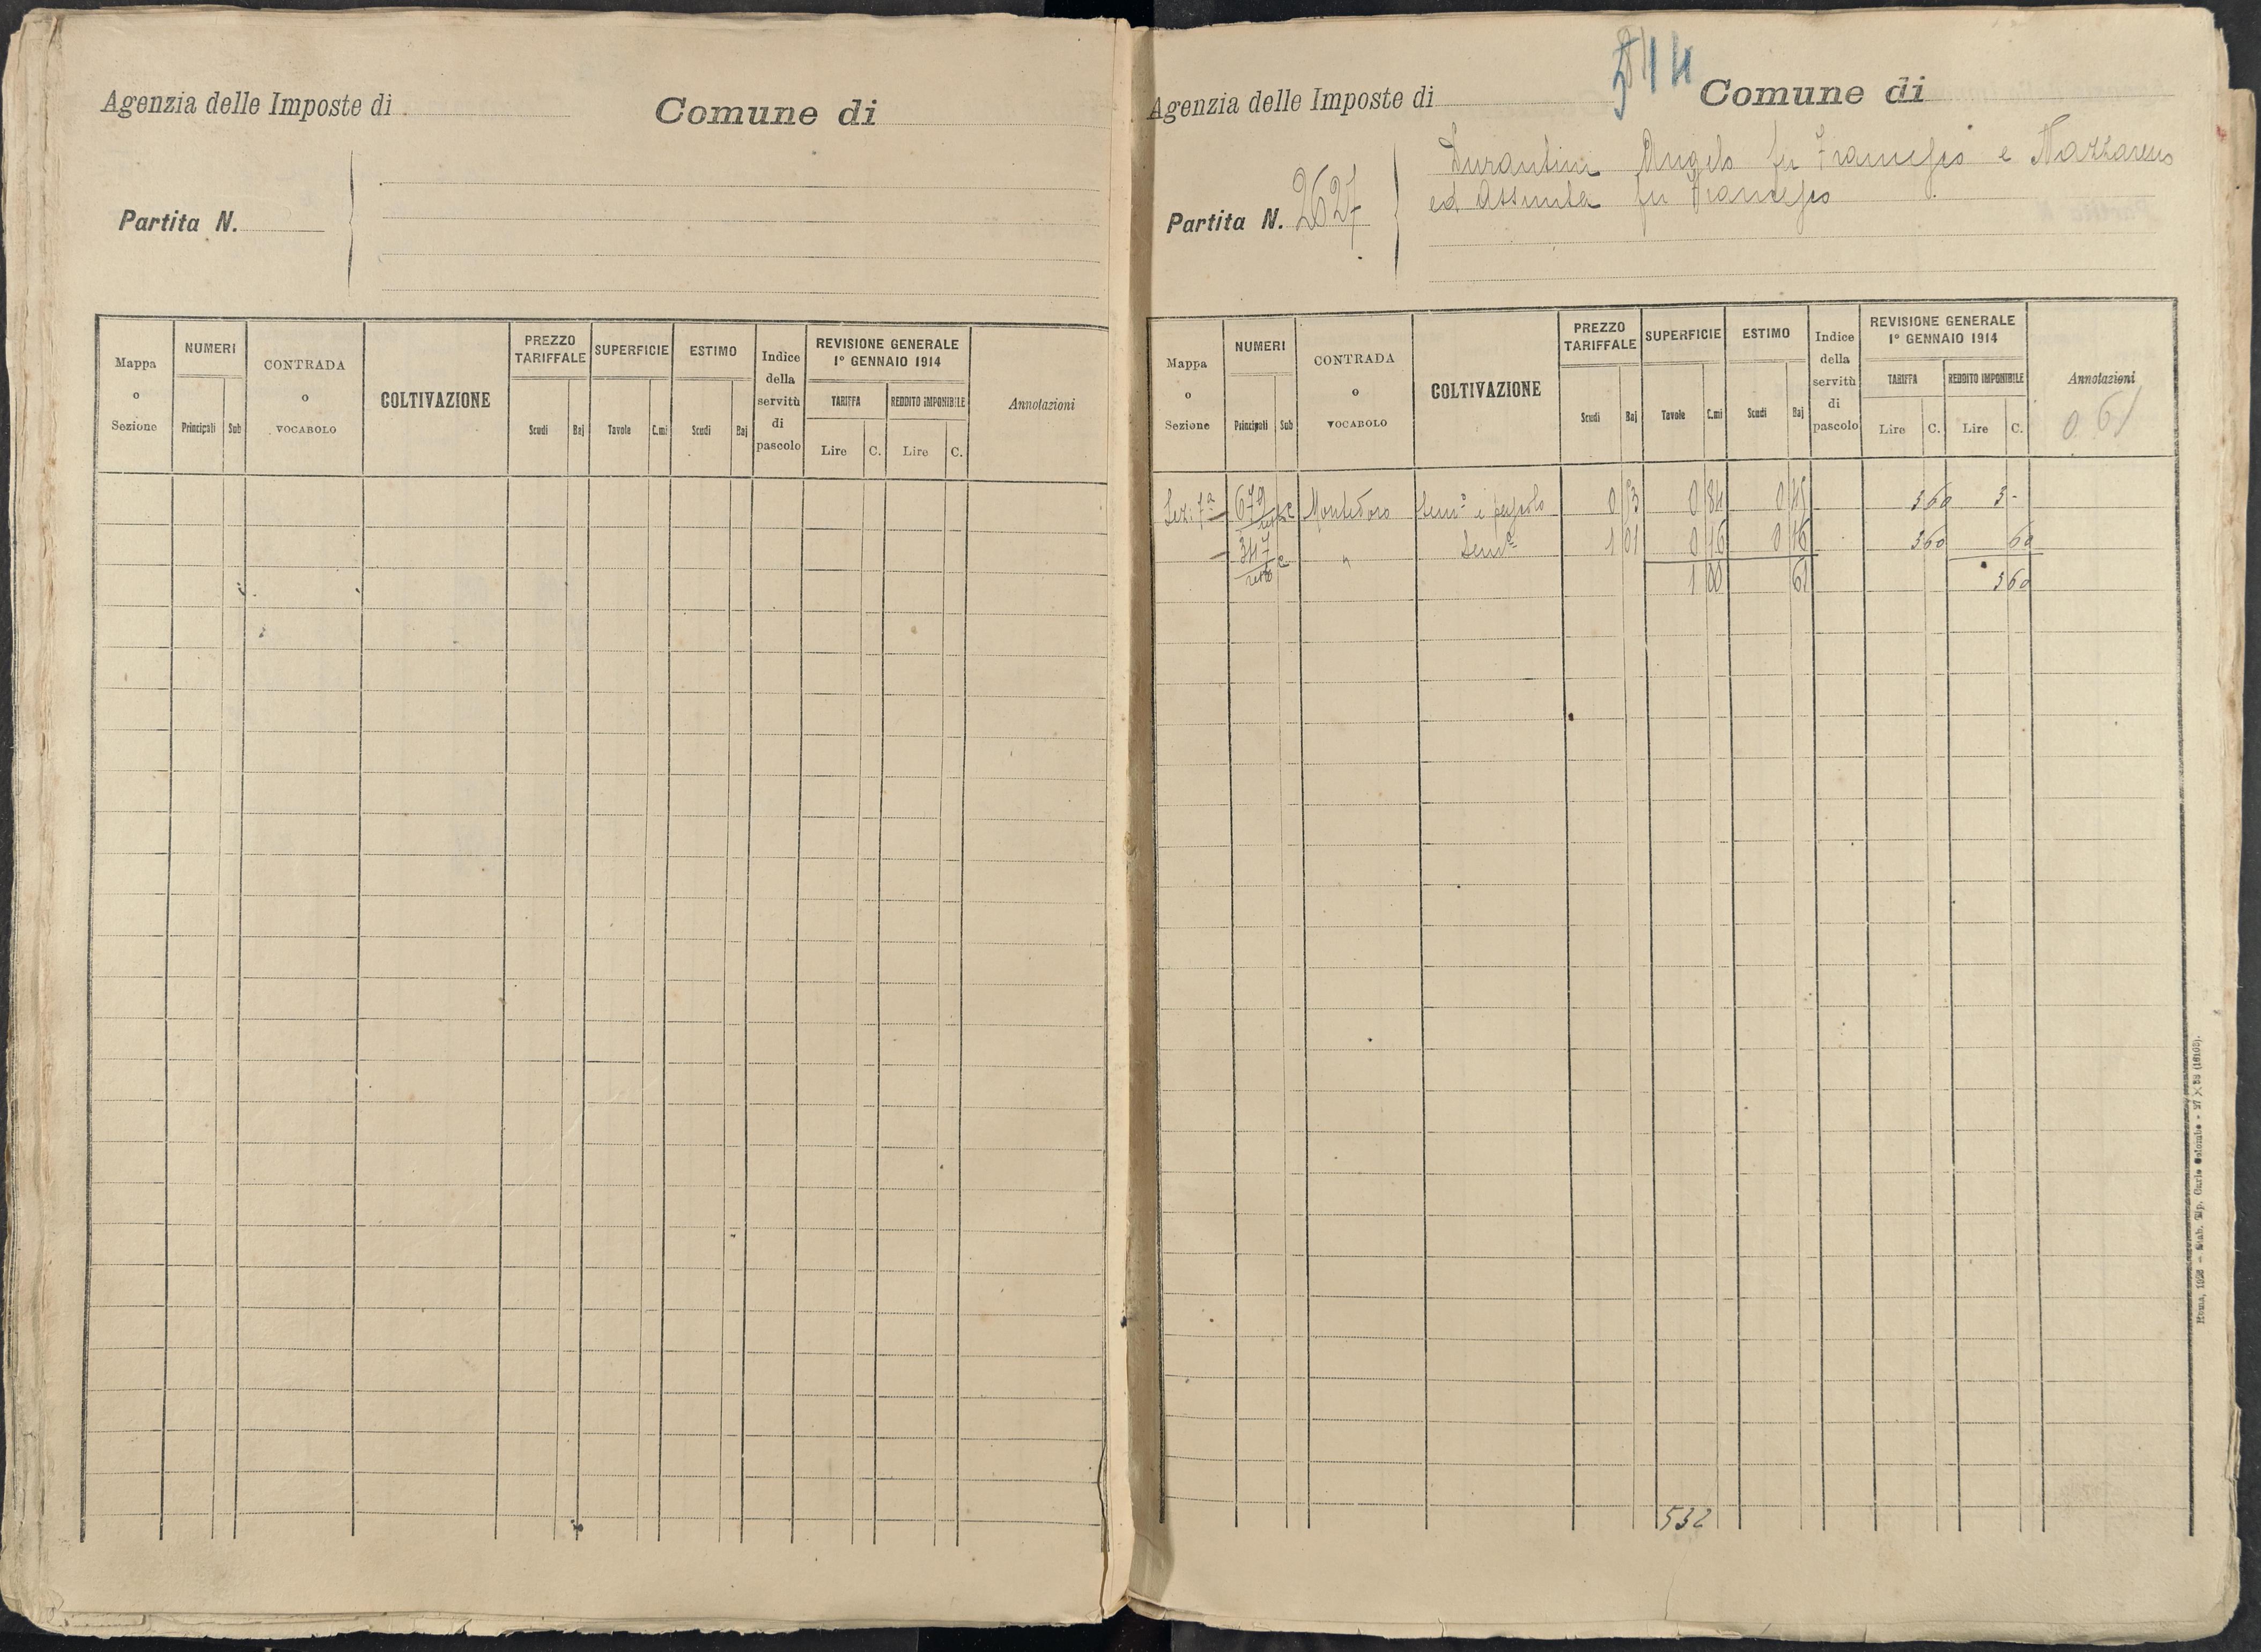 Agenzia delle Imposte di
Comune di
Partita N.
Mappa o Sezione
NUMERI
Principali
Sub
CONTRADA o VOCABOLO
COLTIVAZIONE
PREZZO TARIFFALE
Scudi
Baj
SUPERFICIE
Tavole
C.mi
ESTIMO
Scudi
Baj
Indice della servitù di pascolo
REVISIONE GENERALE 1° GENNAIO 1914
TARIFFA
Lire
C.
REDDITO IMPONIBILE
Lire
C.
Annotazioni
544
Agenzia delle Imposte di
Comune di
Partita N. 2627
Durantini Angelo fu Francesco e Nazzareno
ed Assunta fu Francesco
Mappa o Sezione
NUMERI
Principali
Sub
CONTRADA o VOCABOLO
COLTIVAZIONE
PREZZO TARIFFALE
Scudi
Baj
SUPERFICIE
Tavole
C.mi
ESTIMO
Scudi
Baj
Indice della servitù di pascolo
REVISIONE GENERALE 1° GENNAIO 1914
TARIFFA
Lire
C.
REDDITO IMPONIBILE
Lire
C.
Annotazioni
0.61
Sez. 7ª 679 resto Montedoro Sem° e pascolo 0 53 0 84 0 45 3 60 3 -
347 resto " Sem° 1 01 0 16 0 16 3 60 60
1 00 61 3 60
532
Roma, 1926 - Stab. Tip. Carlo Colombo